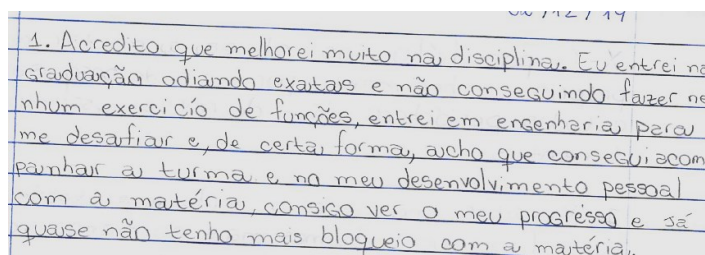 02/12/19
1. Acredito que melhorei muito na disciplina. Eu entrei na
graduação odiando exatas e não conseguindo fazer ne
nhum exercicío de funções, entrei em engenharia para
me desafiar e, de certa, forma, acho que consegui acom
panhar a turma e no meu desenvolvimento pessoal
com a matéria, consigo ver o meu progresso e já
quase não tenho mais bloqueio com a matéria.